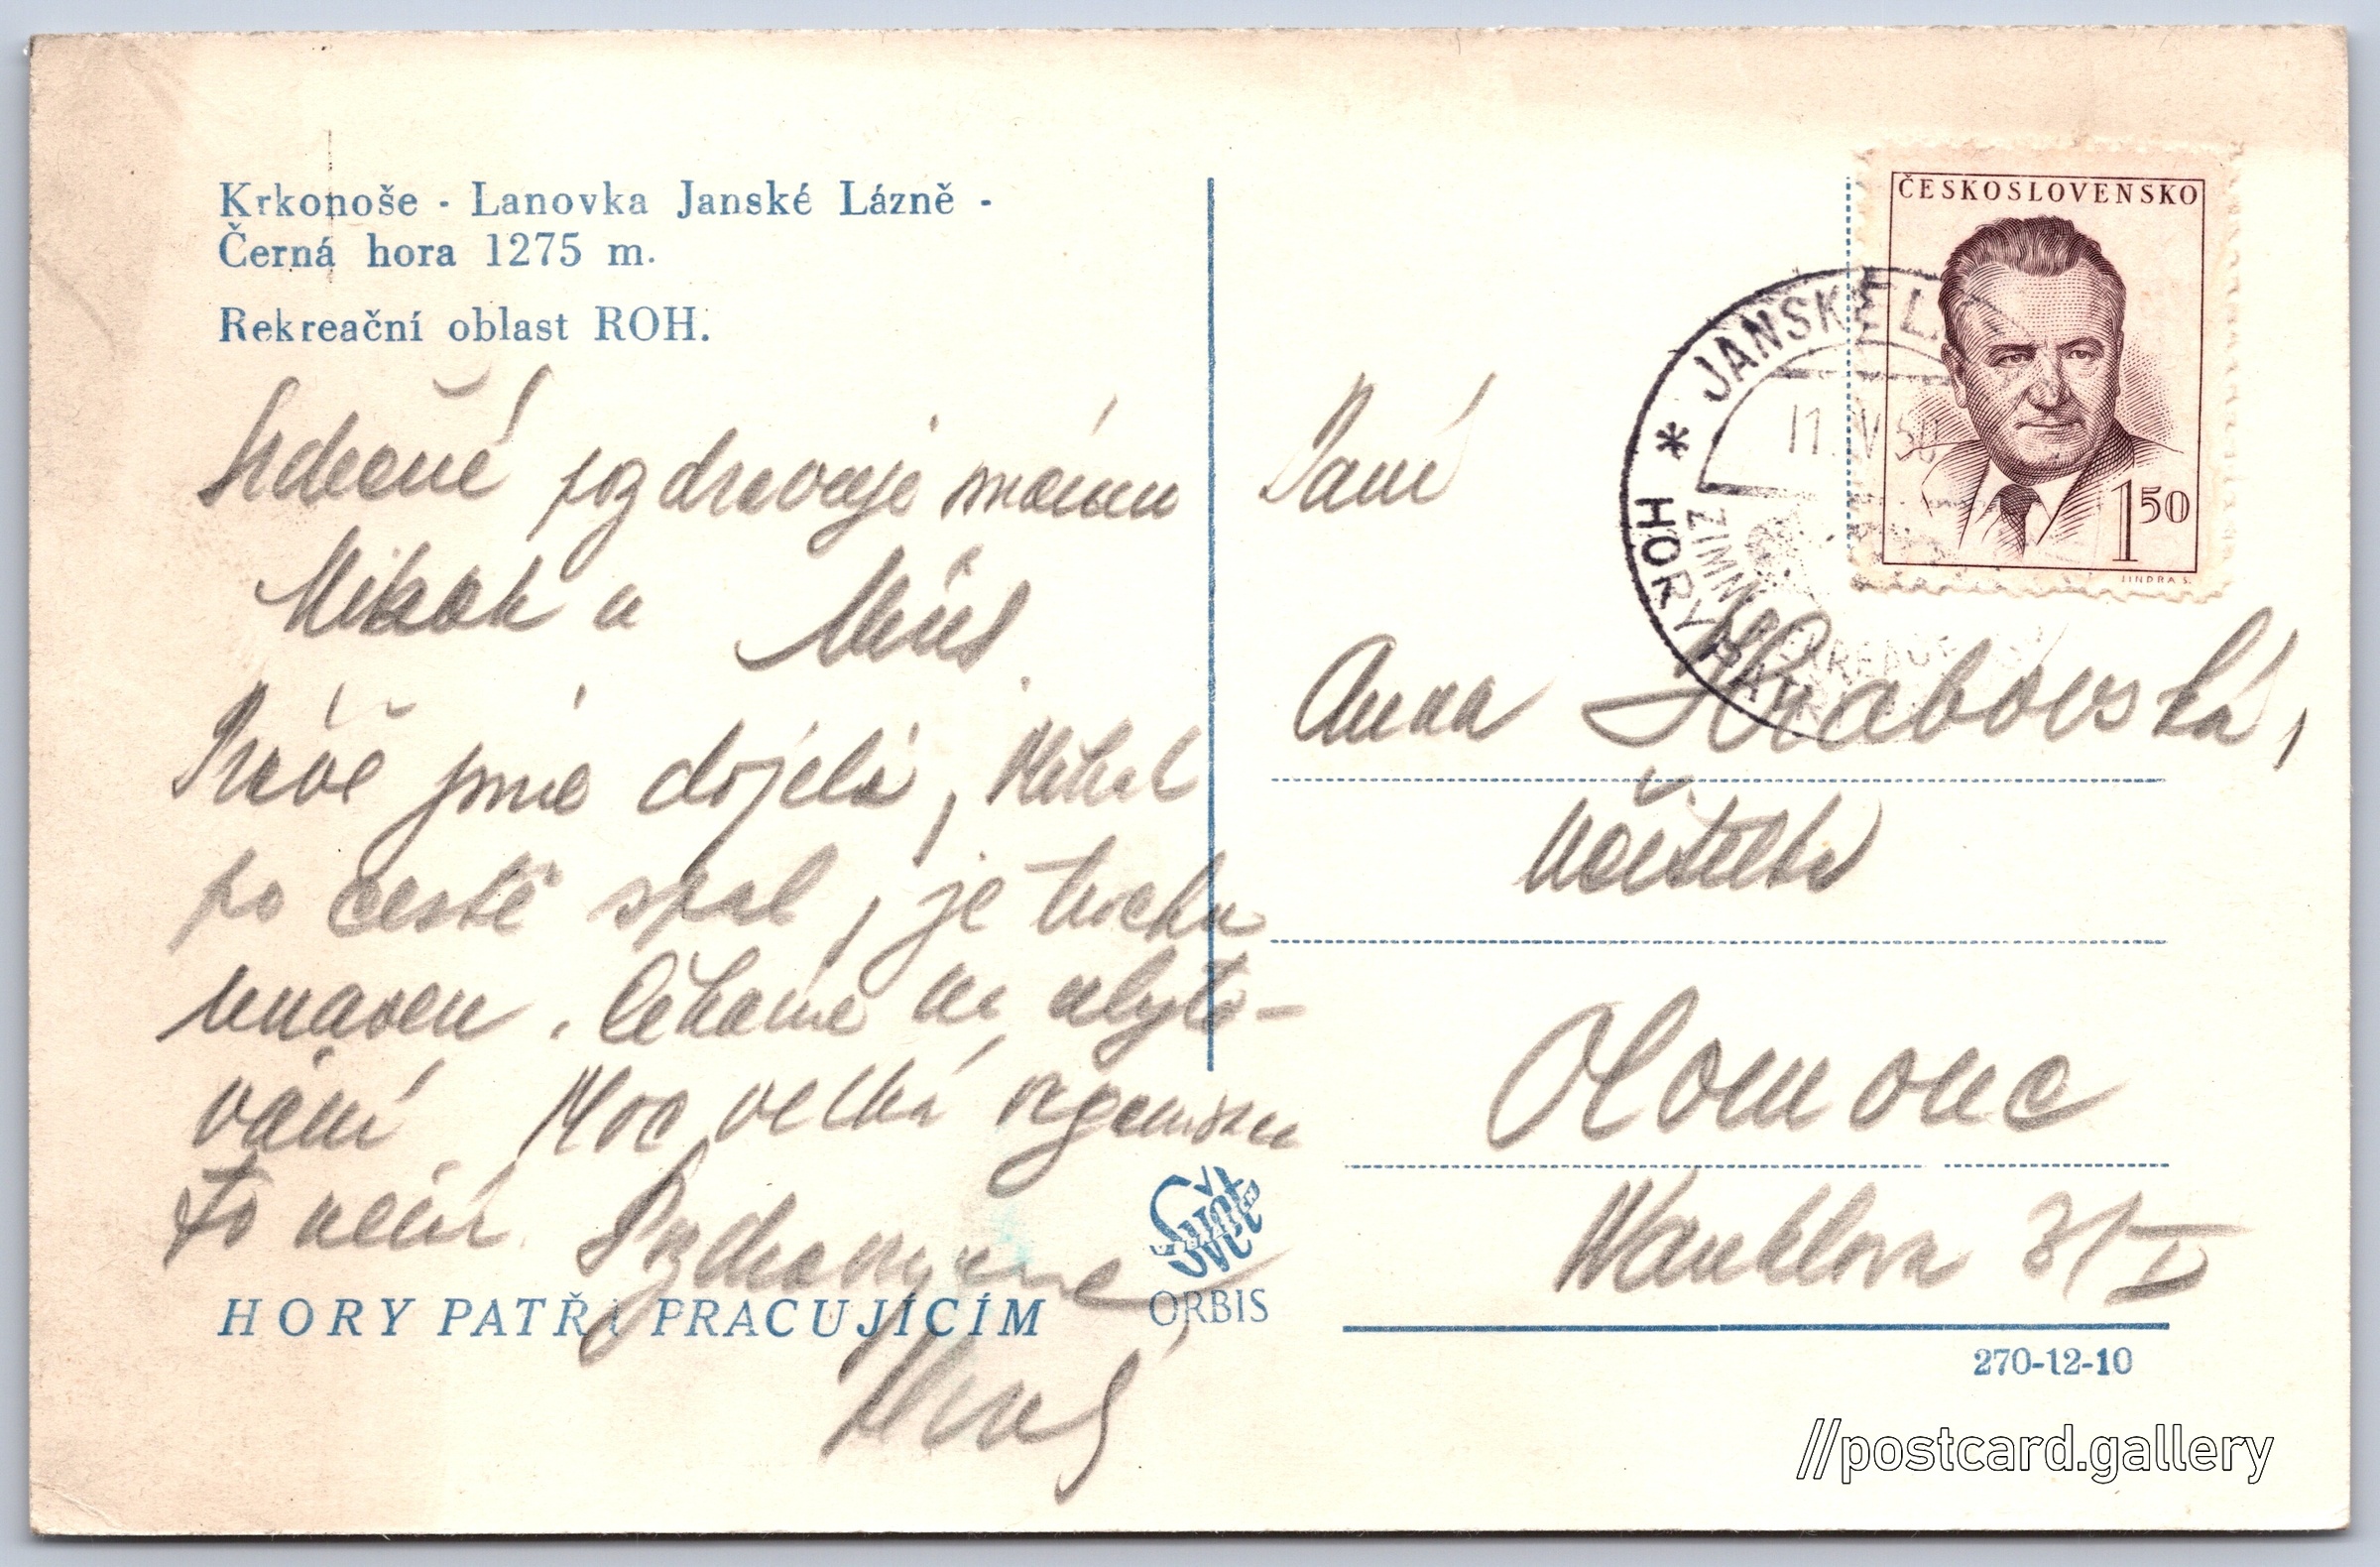 Krkonoše - Lanovka Janské Lázně -
Černá hora 1275 m.
Rekreační oblast ROH.
Srdečně pozdravuje
Právě jsme dojeli,
po cestě spal, je trochu
unaven. Čekáme na ubyto-
vání. Moc velká
to není. Pozdravujeme
HORY PATŘÍ PRACUJÍCÍM
Svět
ORBIS
ČESKOSLOVENSKO
1 50
JINDRA S.
* JANSKÉ L
11. V 50
HORY PATŘ
ZIMN REKREACE
Paní
Anna Hrabovská,
učitelka
Olomouc
Wanklova
270-12-10
//postcard.gallery